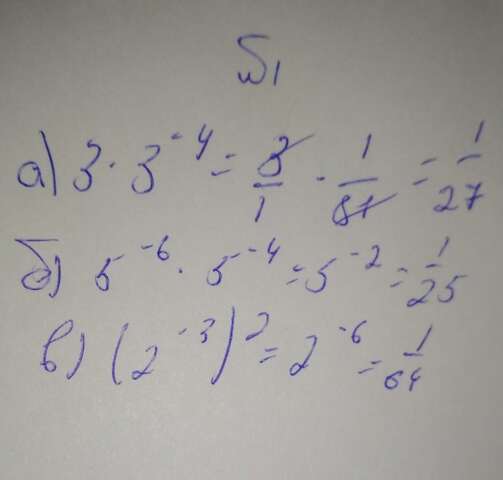 №1
а) 3 · 3^-4 = 3/1 · 1/81 = 1/27
б) 5^-6 · 5^-4 = 5^-2 = 1/25
в) (2^-3)^2 = 2^-6 = 1/64